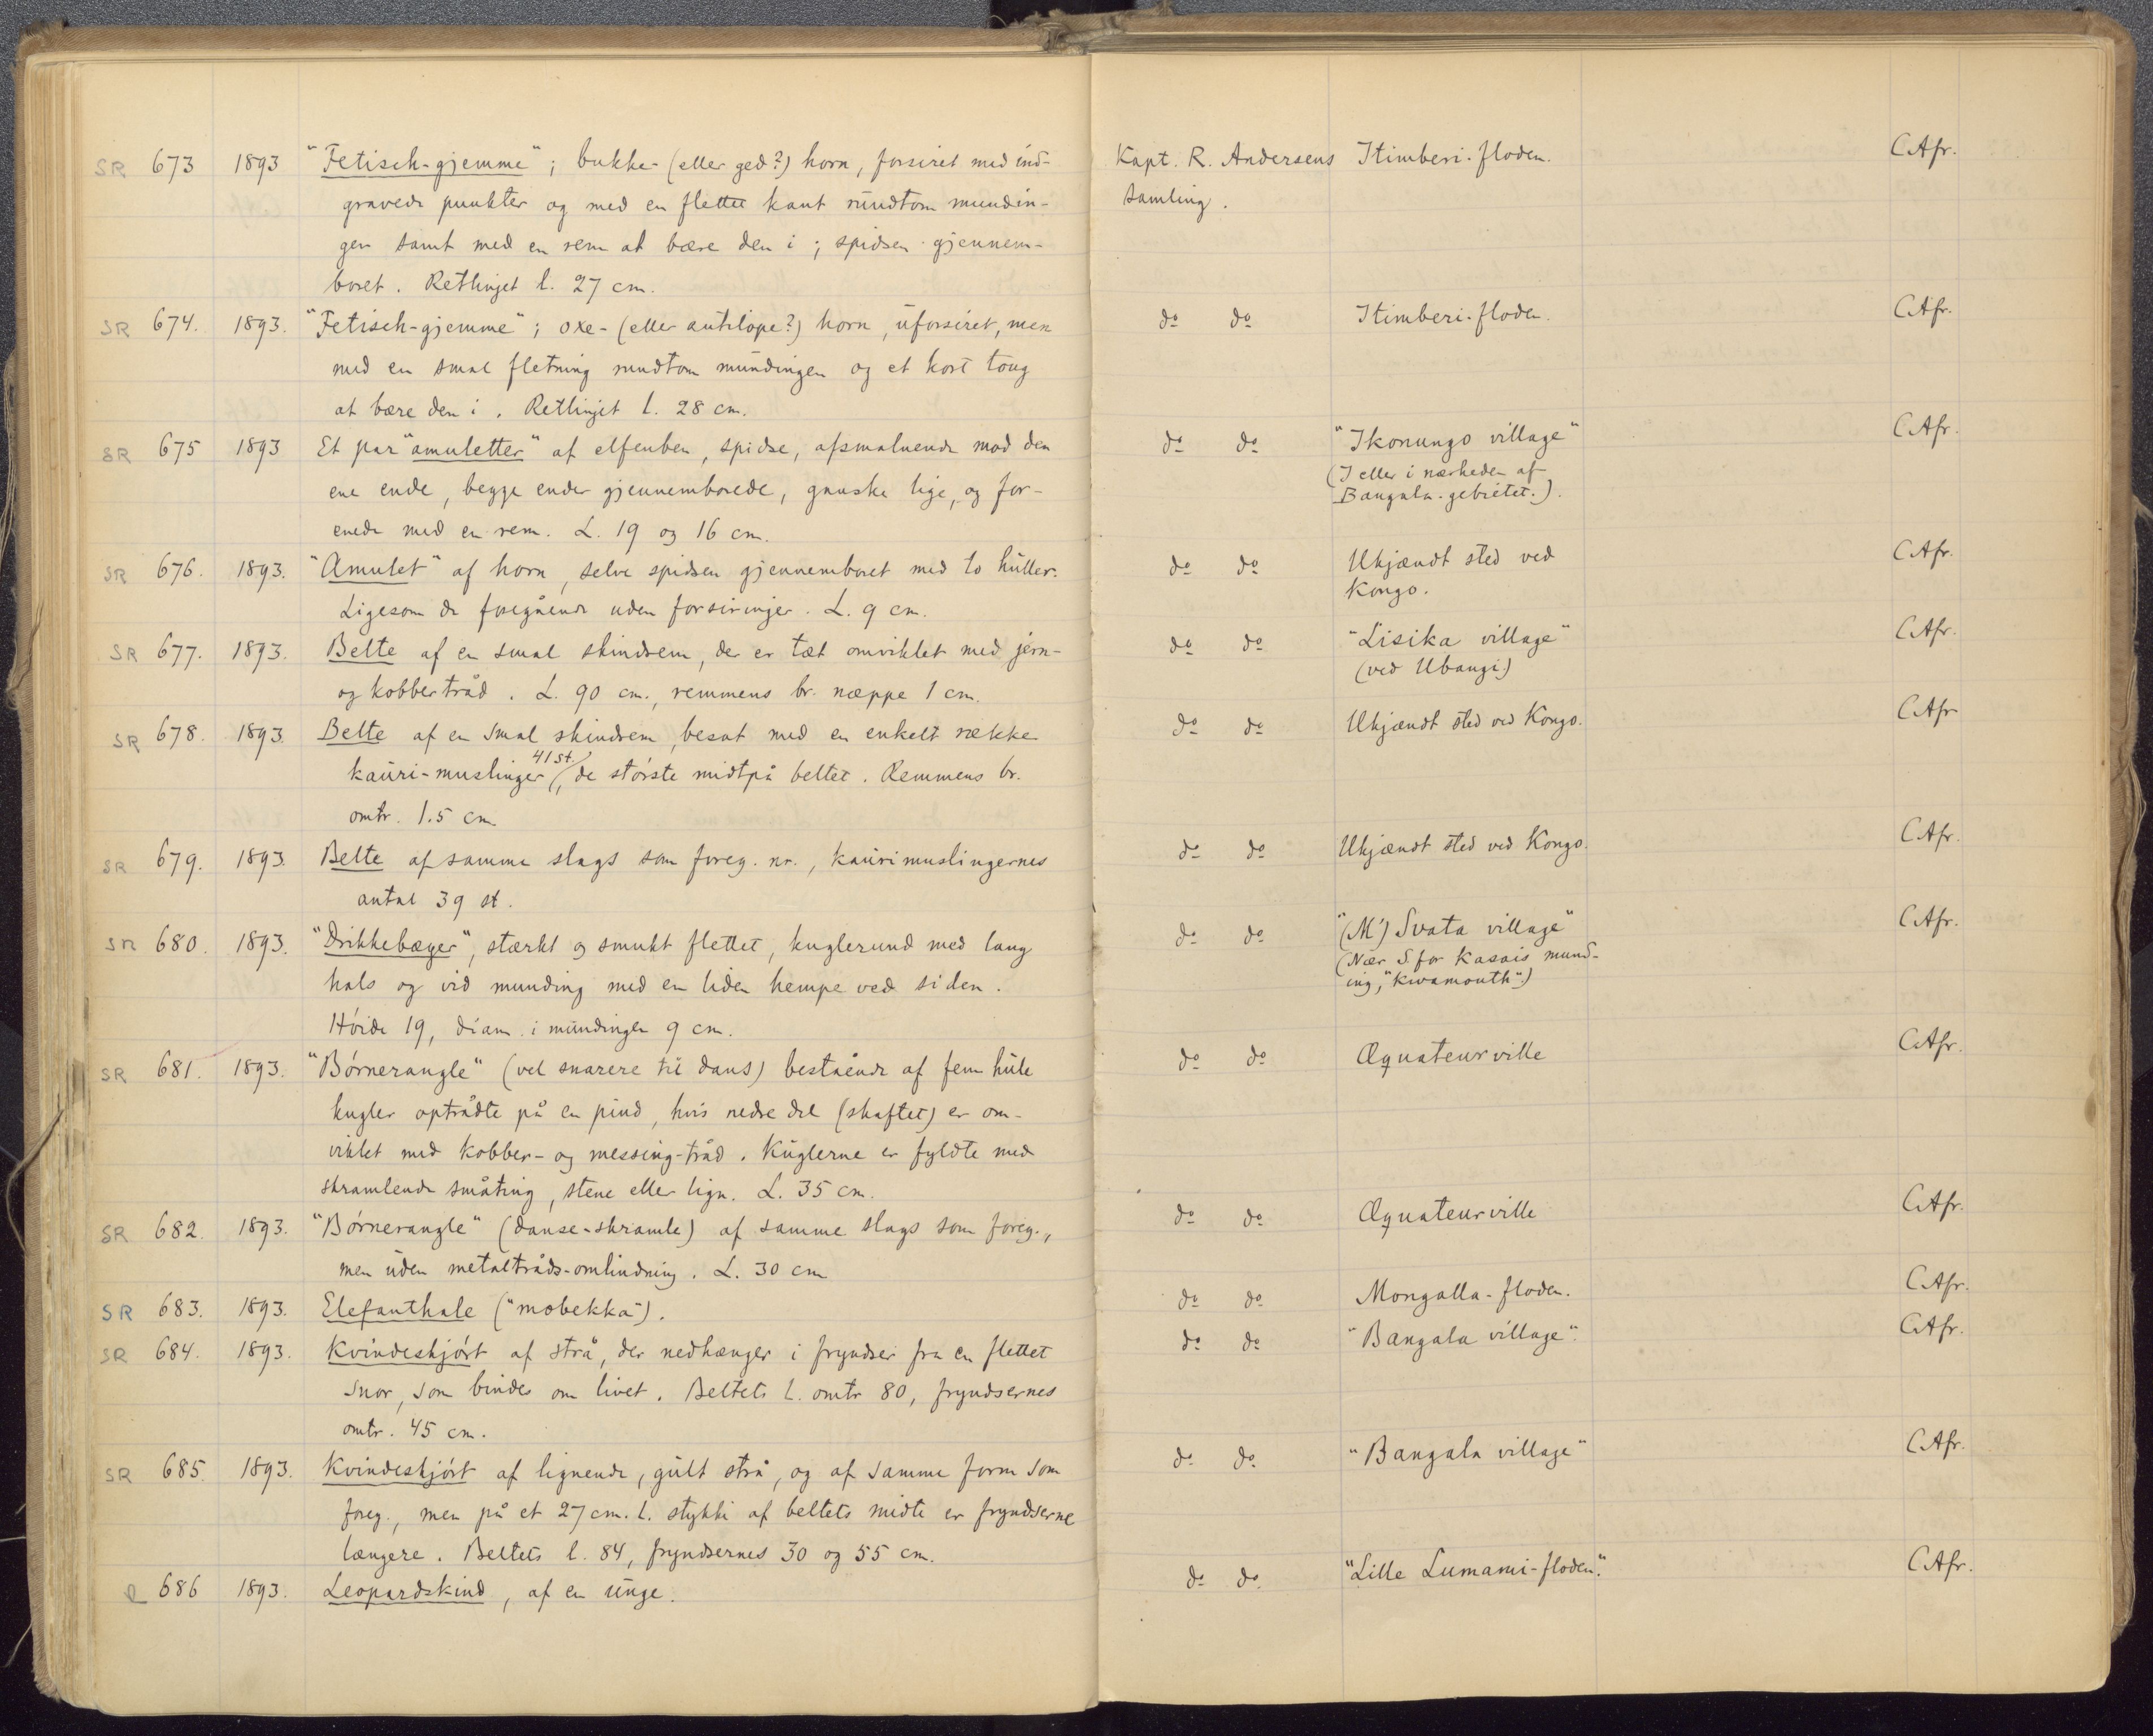 SR 673 1893 "Fetisch-gjemme"; bukke- (eller ged?) horn, forsiret med ind- Kapt. R. Andersens Itimberi-floden. C.Afr.
gravede punkter og med en flettet kant rundtom mundin- samling.
gen samt med en rem at bære den i; spidsen gjennem-
boret. Retlinjet l. 27 cm.
SR 674. 1893. "Fetisch-gjemme"; oxe- (eller antilope?) horn, uforsiret, men do do Itimberi-floden. C.Afr.
med en smal fletning rundtom mundingen og et kort toug
at bære den i. Retlinjet l. 28 cm.
SR 675 1893 Et par "amuletter" af elfenben, spidse, afsmalnende mod den do do "Ikonungo village" C.Afr.
ene ende, begge ender gjennemborede, ganske lige, og for- (I eller i nærheden af
enede med en rem. L. 19 og 16 cm. Bangala-gebietet.).
SR 676. 1893. "Amulet" af horn, selve spidsen gjennemboret med to huller. do do Ukjændt sted ved C.Afr.
Ligesom de foregående uden forsiringer. L. 9 cm. Kongo.
SR 677. 1893. Belte af en smal skindrem, der er tæt omviklet med jern- do do "Lisika village" C.Afr.
og kobbertråd. L. 90 cm., remmens br. næppe 1 cm. (ved Ubangi)
SR 678. 1893. Belte af en smal skindrem, besat med en enkelt række do do Ukjændt sted ved Kongo. C.Afr
kauri-muslinger 41 st., de største midtpå beltet. Remmens br.
omtr. 1.5 cm
SR 679. 1893. Belte af samme slags som foreg. nr., kaurimuslingernes do do Ukjændt sted ved Kongo. C.Afr.
antal 39 st.
SR 680. 1893. "Drikkebæger", stærkt og smukt flettet, kuglerund med lang do do "(M') Svata village" C.Afr.
hals og vid munding med en liden hempe ved siden. (Nær S. for Kasais mund-
Høide 19, diam. i mundingen 9 cm. ing, "Kwamouth".)
SR 681. 1893. "Børnerangle" (vel snarere til dans) bestående af fem hule do do Æquateurville C.Afr.
kugler optrådte på en pind, hvis nedre del (skaftet) er om-
viklet med kobber- og messing-tråd. Kuglerne er fyldte med
skramlende småting, stene eller lign. L. 35 cm.
SR 682. 1893. "Børnerangle" (danse-skramle) af samme slags som foreg., do do Æquateurville C.Afr.
men uden metaltråds-omlindning. L. 30 cm
SR 683. 1893. Elefanthale ("mobekka"). do do Mongalla-floden. C.Afr.
SR 684. 1893. Kvindeskjørt af strå, der nedhænger i fryndser fra en flettet do do "Bangala village". C.Afr.
snor, som bindes om livet. Beltets l. omtr 80, fryndsernes
omtr. 45 cm.
SR 685. 1893. Kvindeskjørt af lignende, gult strå, og af samme form som do do "Bangala village" C.Afr.
foreg., men på et 27 cm. l. stykke af beltets midte er fryndserne
længere. Beltets l. 84, fryndsernes 30 og 55 cm.
686 1893. Leopardskind, af en unge. do do. "Lille Lumami-floden". C.Afr.